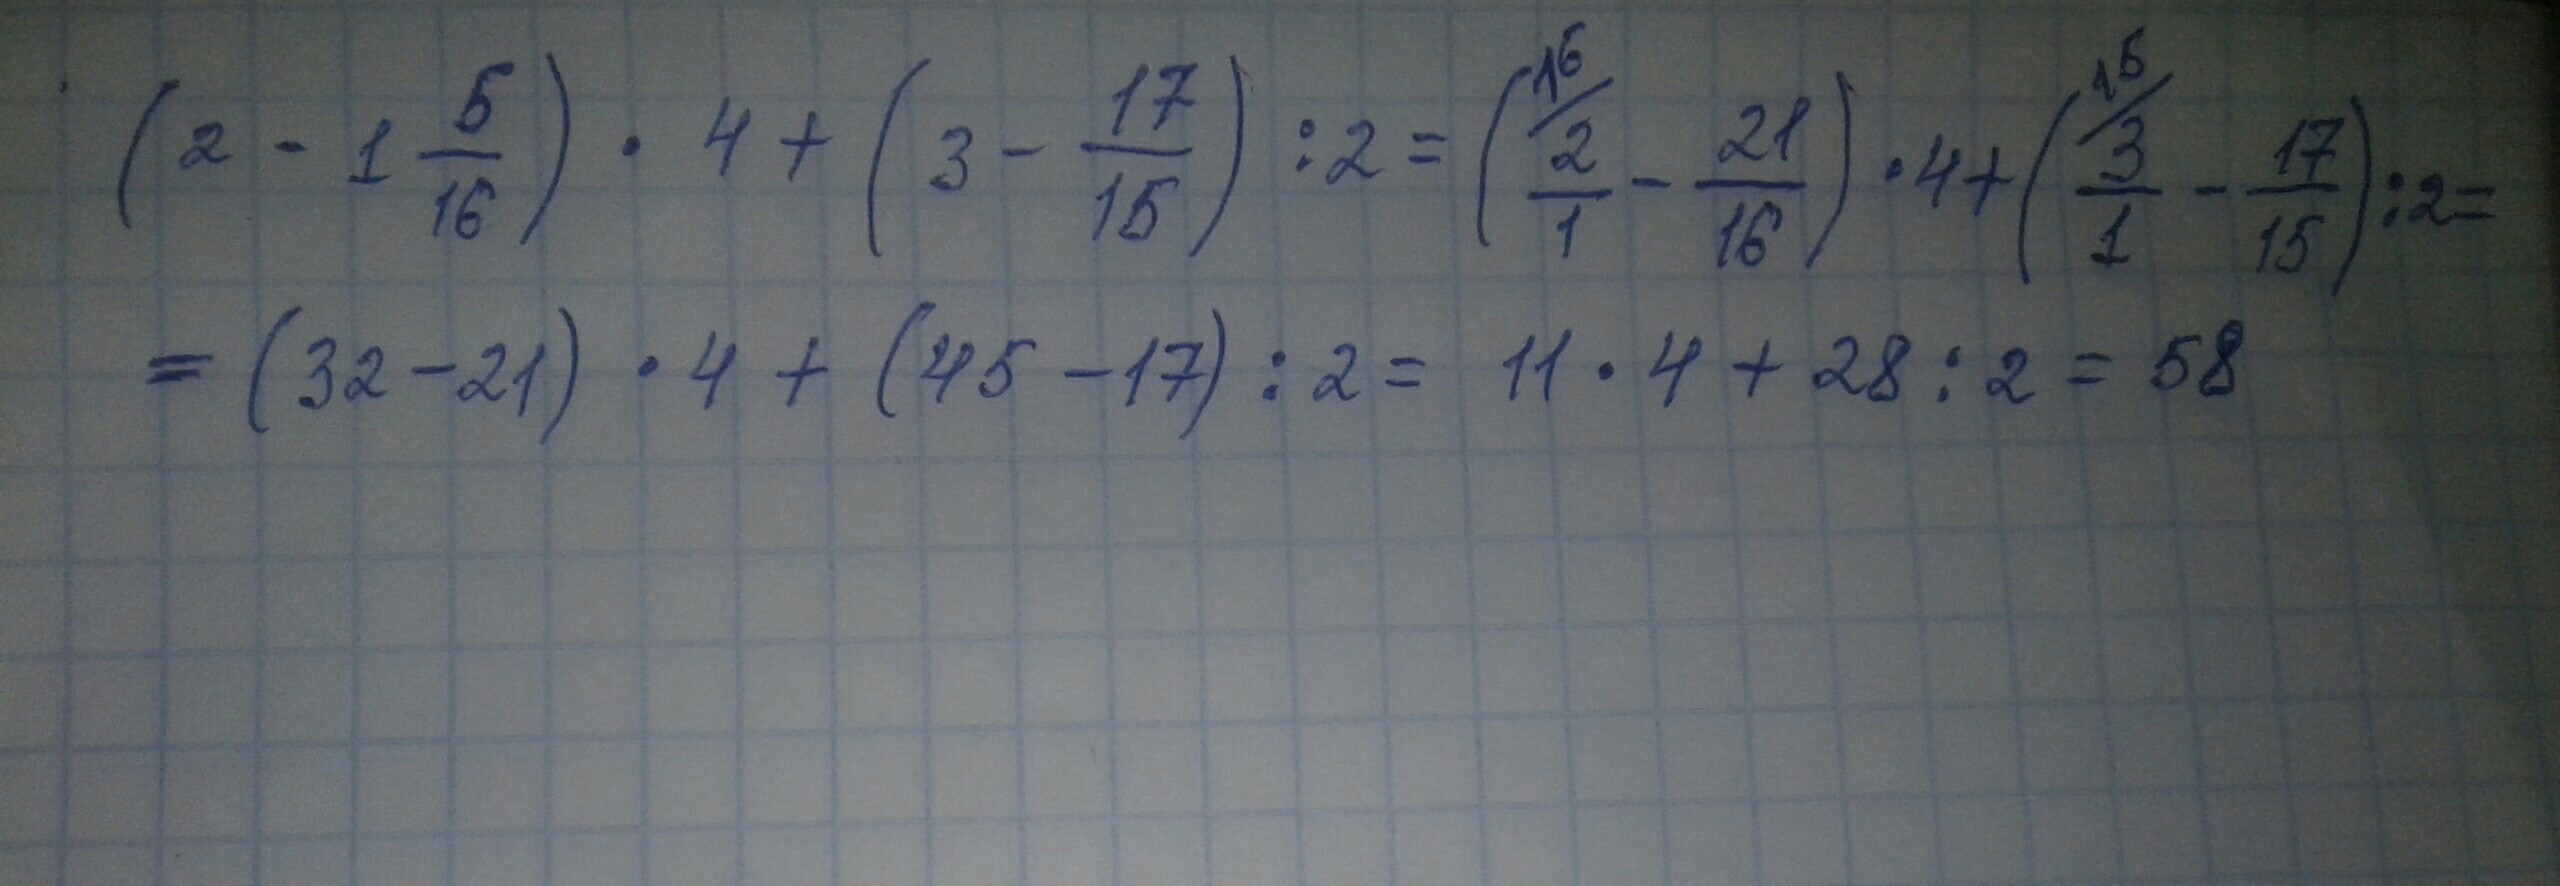 (2 - 1 5/16) · 4 + (3 - 17/15) : 2 = (16/ 2/1 - 21/16) · 4 + (15/ 3/1 - 17/15) : 2 =
= (32 - 21) · 4 + (45 - 17) : 2 = 11 · 4 + 28 : 2 = 58